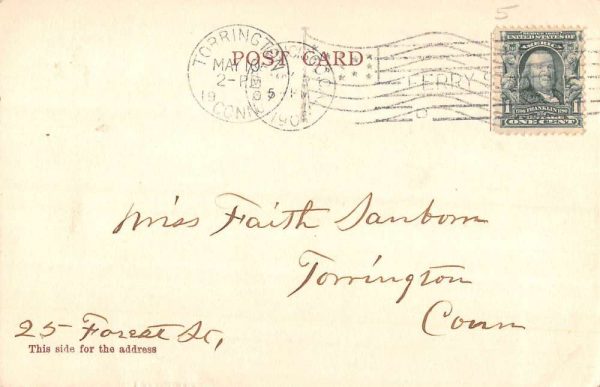 5
POST CARD
TORRINGTON
MAY
2-PM
19
CONN.
5
190
FERRY
UNITED STATES OF AMERICA
1 FRANKLIN 1
ONE CENT
Miss Faith Sanborn
Torrington
Conn
25 Forest St,
This side for the address